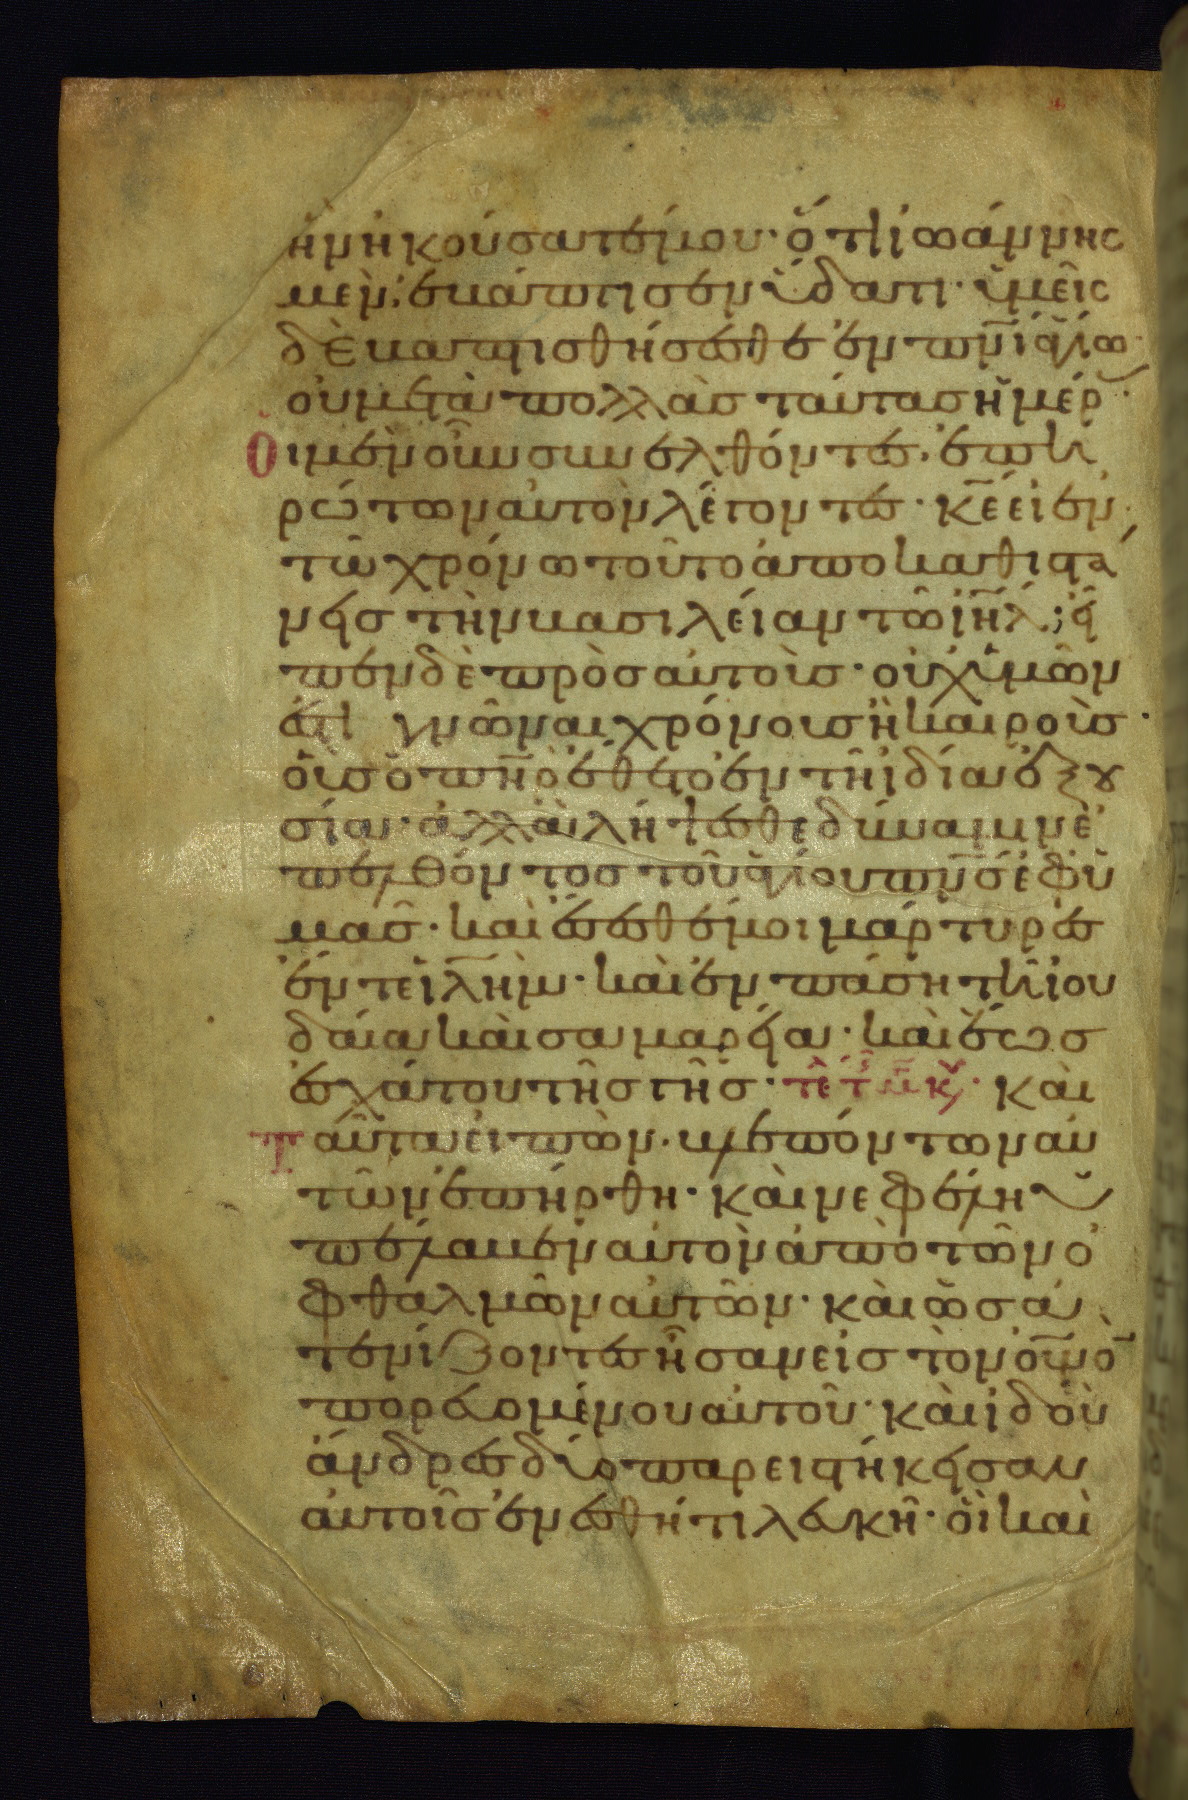 ἣν ἠκούσατέ μου· ὅτι ἰωάννης
μεν ἐβάπτισεν ὕδατι· ὑμεῖς
δὲ βαπτισθήσεσθε ἐν πνῑ ἁγίω·
οὐ μετὰ πολλὰς ταύτας ἡμέρ
Οἱ μὲν οὖν συνελθόντες· ἐπη
ρώτων αὐτὸν λέγοντες· κ̅ε̅ εἰ ἐν
τῶ χρόνω τούτο ἀποκαθιστά
νεις τὴν βασιλείαν τῶ ἰ̅η̅λ̅; εἶ
πεν δὲ πρὸς αὐτοὺς· οὐχ ὑμῶν
ἐστι γνῶναι χρόνους ἢ καιροὺς·
οὓς ὁ π̅η̅ρ̅ ἔθετο ἐν τῆ ἰδία ἐξου
σία· ἀλλὰ λήψεσθε δύναμιν ἐ
πελθόντος τοῦ ἁγίου π̅ν̅ς̅ ἐφ ὑ
μᾶς· καὶ ἔσεσθέ μοι μάρτυρες
ἔν τε ἰ̅λ̅ή̅μ̅· καὶ ἐν πάση τῆ ἰου
δαία καὶ σαμαρεία· καὶ ἕως
ἐσχάτου τῆς γῆς· κὰι
Ταῦτα εἰπὼν· βλεπόντων αυ
τῶν ἐπήρθη· κὰι νεφέλη ὑ
πέλαβεν αὐτὸν ἀπὸ τῶν ὀ
φθαλμῶν αὐτῶν· κὰι ὡς ἀ
τενίζοντες ἦσαν εἰς τὸν ο̅υ̅ν̅ο̅
πορευομένου αὐτοῦ· κὰι ἰδοὺ
ἄνδρες δύο παρειστήκεισαν
αὐτοῖς ἐν ἐσθήτι λευκῆ· ὃι καὶ